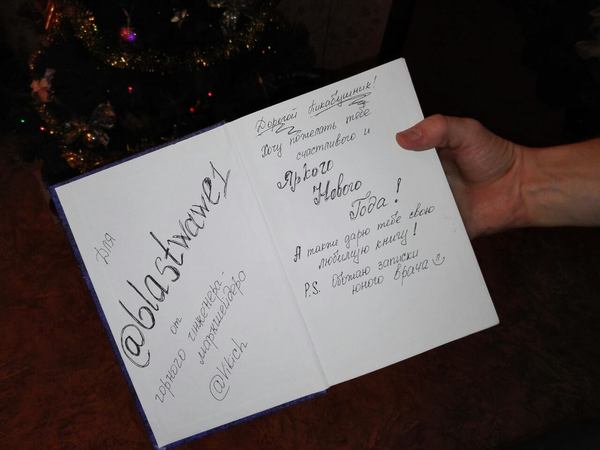 Для
@blastwave1
от
горного инженера-
маркшейдера
@kikich
Дорогой Пикабушник!
Хочу пожелать тебе
счастливого и
Яркого
Нового
Года!
А также дарю тебе свою
любимую книгу!
P.S. Обожаю записки
юного врача